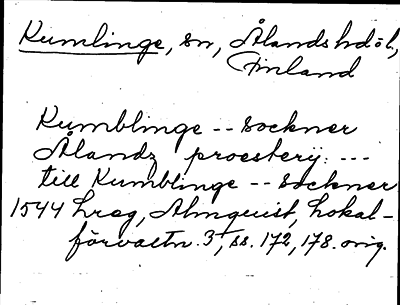 Kumlinge, sn, Ålands hd öl,
Finland
Kumblinge -- sockner
Ålandz proesterij: ---
till Kumblinge -- sockner
1544 hreg, Almquist, Lokal-
förvaltn. 3, ss. 172, 178. orig.